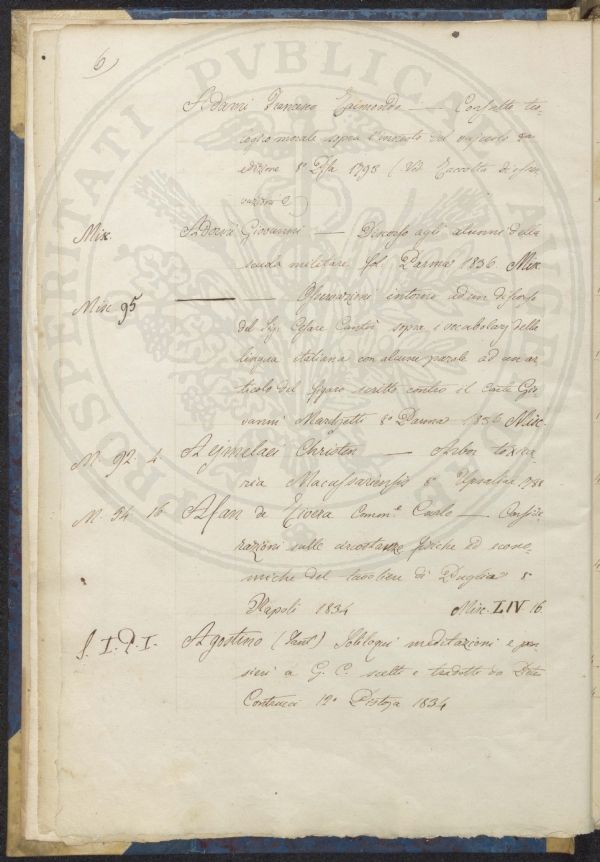 6
Adorni Francesco Raimondo — Consulto teo-
logico morale sopra l'innesto del vajuolo
edizione 8° Pisa 1795 (Ved. Raccolta di
Misc. Adorni Giovanni — Discorso agli alunni della
scuola militare fol. Parma 1836 Misc.
Misc. 95 — Osservazioni intorno ad un discorso
del Sig. Cesare Cantù sopra i vocabolarj della
lingua italiana con alcune parole ad un ar-
ticolo del figaro scritto contro il Conte Gio-
vanni Marchetti 8° Parma 1836 Misc.
M. 92. 4 Aejmelaei Christen — Arbor toxica-
ria Macassariensis 8° Upsaliae 1788
M. 54 16 Afan de Rivera Comm.e Carlo — Conside-
razioni sulle circostanze fisiche ed econo-
miche del tavoliere di Puglia 8
Napoli 1834 Misc. LIV 16
I. I. Agostino (Sant') Soliloqui meditazioni e pen-
sieri a G. C. scelti e tradotti da
Contrucci 12° Pistoja 1834
PROSPERITATI PVBLICAE